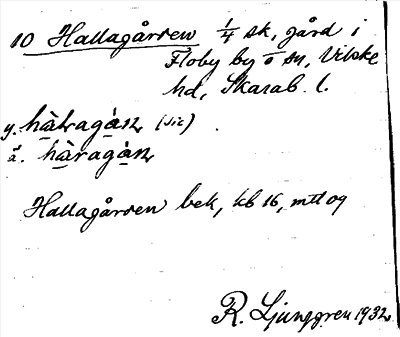 10 Hallagården 1/4 sk, gård i
Floby by o sn, Vilske
hd, Skarab. l.
y. hàlragá̀n (sic)
ä. hàragá̀n
Hallagården bek, kb 16, mtl og
R. Ljunggren 1932